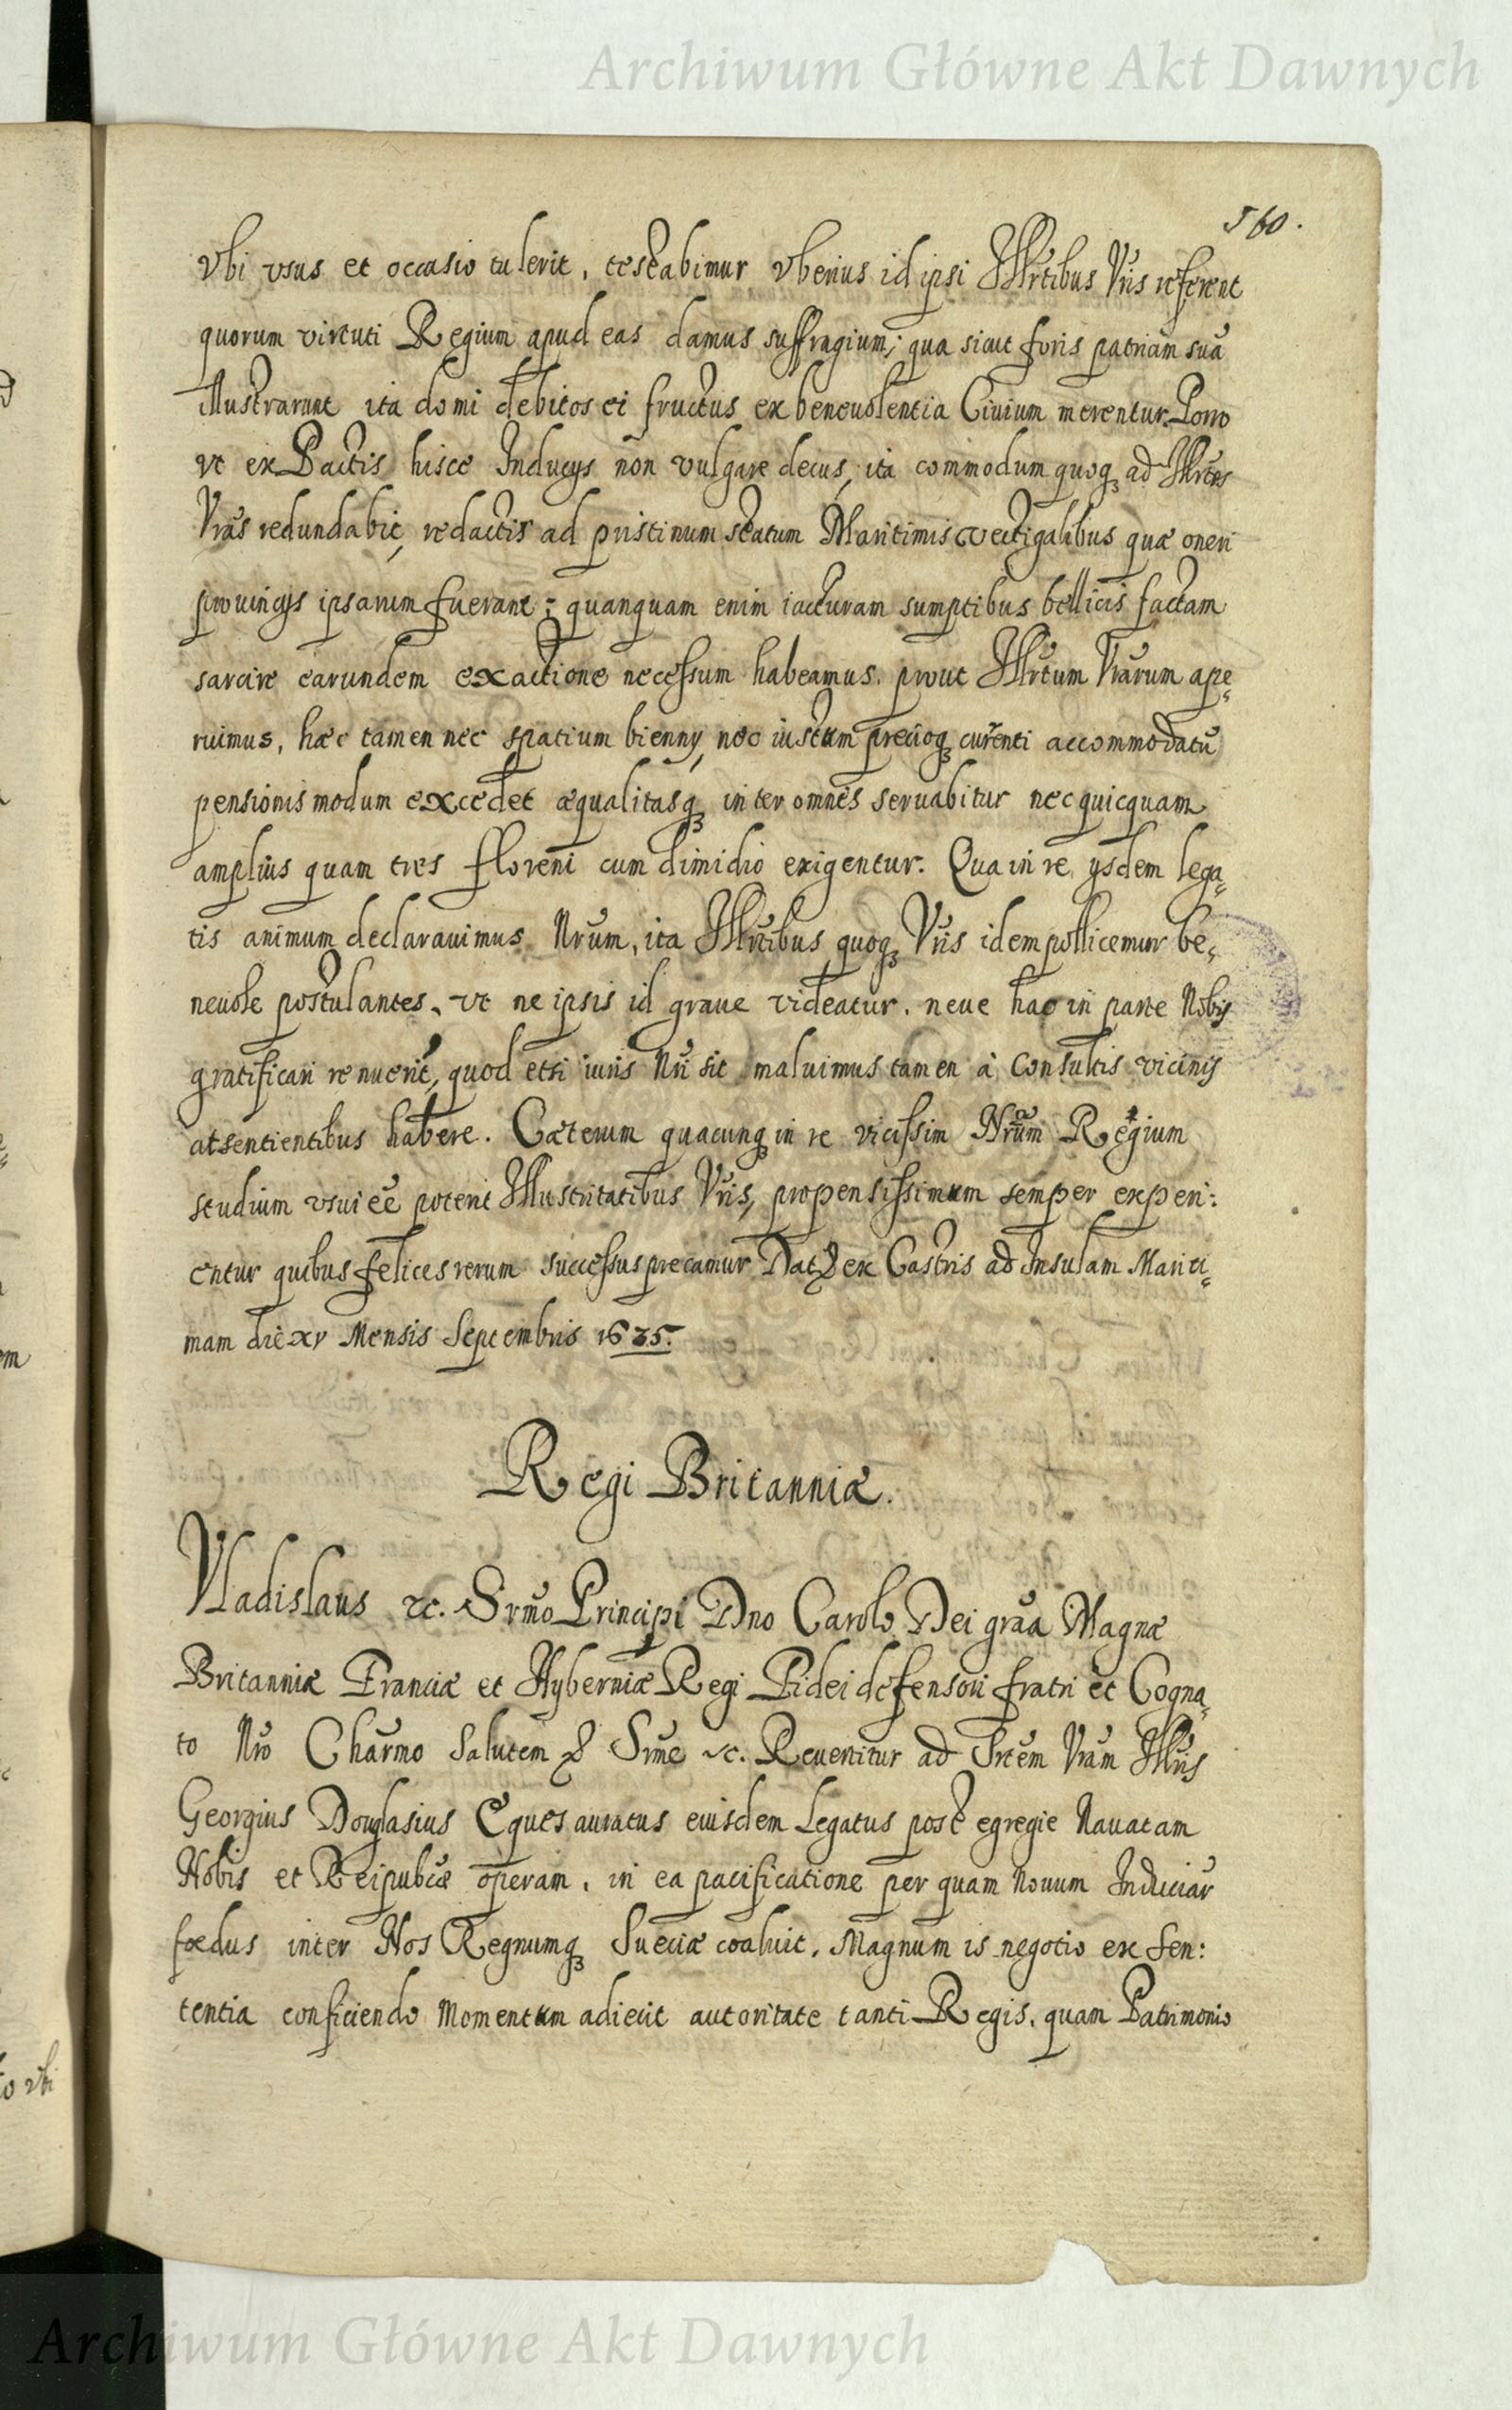 Archiwum Główne Akt Dawnych
560.
Vbi vsus et occasio tulerit, testabimur vberius id ipsi Illrtibus Vris referent
quorum virtuti Regium apud eas damus suffragium; qua sicut foris patriam suã
illustrarunt ita domi debitos ei fructus ex beneuolentia Ciuium merentur. Porro
vt ex Pactis hisce Inducys non vulgare decus, ita commodum quoq₃ ad Illrtes
Vras redundabit, redactis ad pristinum statum Maritimis vectigalibus quæ oneri
prouincys ipsarum fuerant; quanquam enim iacturam sumptibus bellicis factam
sarcire earundem exactione necessum habeamus. prout Illrtum Vrarum ape⸗
ruimus, hæc tamen nec spatium bienny, nec iustum precioq₃ curenti accommodatũ
pensionis modum excedet æqualitasq₃ inter omnes seruabitur nec quicquam
amplius quam tres floreni cum dimidio exigentur. Qua in re ysdem lega⸗
tis animum declarauimus Nrum, ita Illrtibus quoq₃ Vris idem pollicemur be⸗
neuole postulantes, vt ne ipsis id graue videatur, neue hac in parte Nobis
gratificari renuerit, quod etsi iuris Nri sit maluimus tamen à Consultis vicinis
atsentientibus habere. Cæterum quacunq₃ in re vicissim Nrum Regium
studium vsui ẽe poterit Illustritatibus Vris, propensissimum semper experi:
entur quibus felices rerum successus precamur Dat ex Castris ad Insulam Mariti⸗
mam die xv Mensis Septembris 1635.
Regi Britanniæ.
Vladislaus &c. Srmo Principi Dno Carolo Dei gra͂a Magnæ
Britanniæ Franciæ et Hyberniæ Regi Fidei defensori fratri et Cogna⸗
to Nro Charmo Salutem & Srme &c. Reuertitur ad Srtem Vram Illris
Georgius Douglasius Eques auratus eiusdem Legatus post egregie Nauatam
Nobis et Reipubcæ operam, in ea pacificatione per quam Nouum Induciar̃
fœdus inter Nos Regnumq₃ Sueciæ coaluit, Magnum is negotio ex Sen:
tentia conficiendo Momentum adiecit autoritate tanti Regis, quam Patrimonio
Archiwum Główne Akt Dawnych